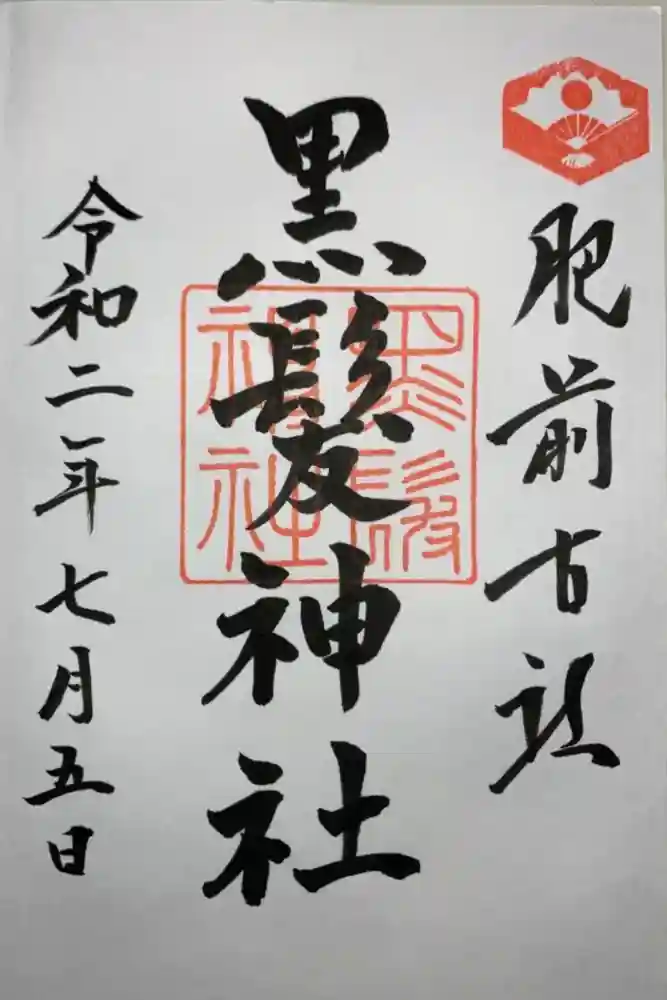 肥前古社
黒髪神社
黒髪神社
令和二年七月五日